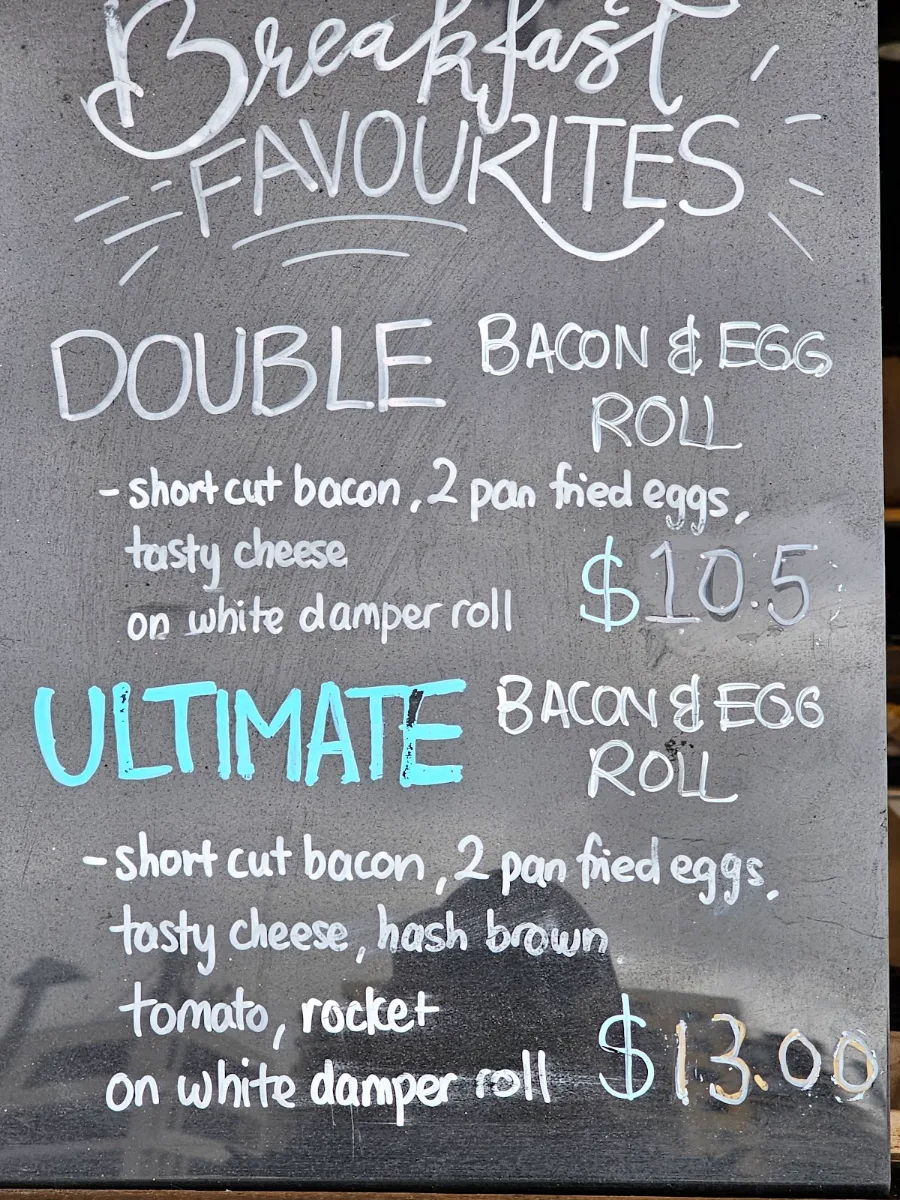 Breakfast
FAVOURITES
DOUBLE BACON & EGG
ROLL
- short cut bacon, 2 pan fried eggs,
tasty cheese
on white damper roll $10.5
ULTIMATE BACON & EGG
ROLL
- short cut bacon, 2 pan fried eggs,
tasty cheese, hash brown
tomato, rocket
on white damper roll $13.00